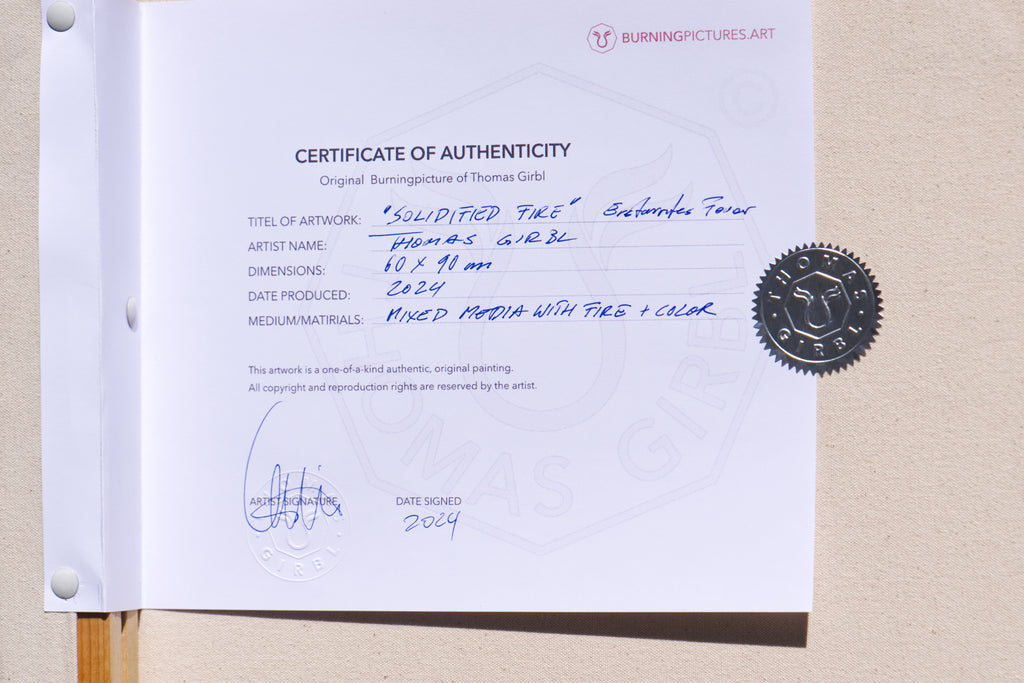 BURNINGPICTURES.ART
©
CERTIFICATE OF AUTHENTICITY
Original Burningpicture of Thomas Girbl
TITEL OF ARTWORK: "SOLIDIFIED FIRE"
ARTIST NAME: THOMAS GIRBL
DIMENSIONS: 60 X 90 cm
DATE PRODUCED: 2024
MEDIUM/MATIRIALS: MIXED MEDIA WITH FIRE + COLOR
THOMAS GIRBL
This artwork is a one-of-a-kind authentic, original painting.
All copyright and reproduction rights are reserved by the artist.
THOMAS GIRBL
ARTIST SIGNATURE
DATE SIGNED
2024
GIRBL